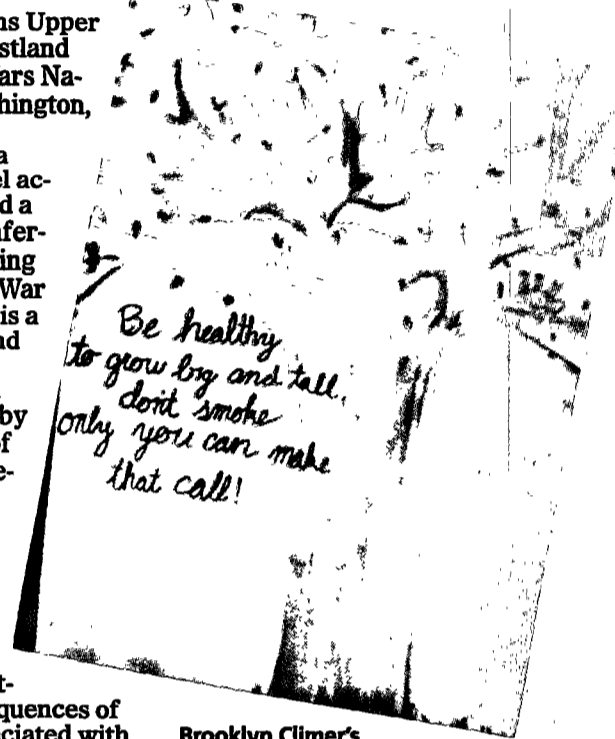 ns Upper
stland
ars Na-
hington,
a
el ac-
d a
nfer-
ing
War
is a
nd
by
of
e-
t-
quences of
ciated with
Be healthy
to grow big and tall,
don't smoke
only you can make
that call!
Brooklyn Climer's